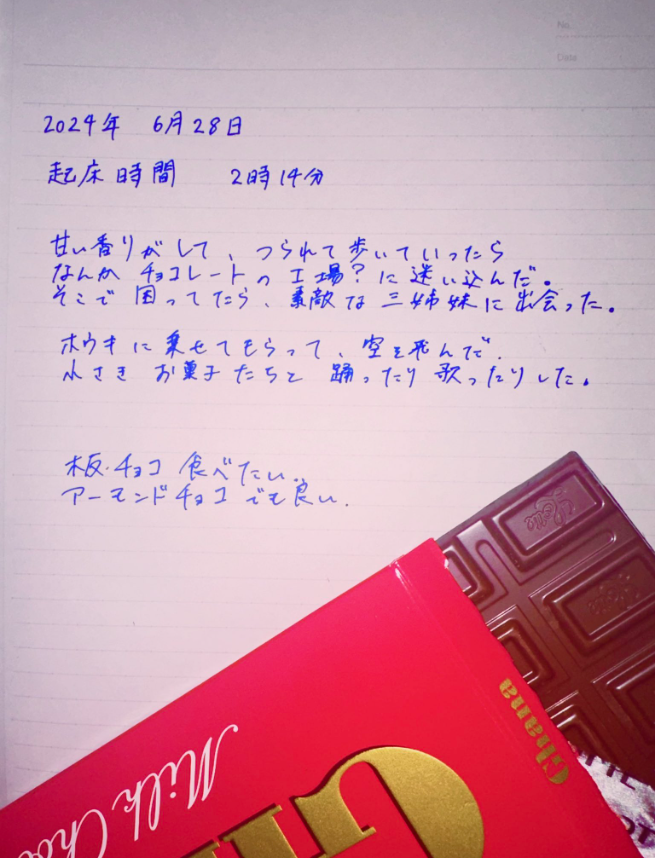 No.
Date
2024年 6月28日
起床時間 2時14分
甘い香りがして、つられて歩いていったら
なんか チョコレートの工場?に迷い込んだ。
そこで困ってたら、素敵な三姉妹に出会った。
ホウキに乗せてもらって、空を飛んだ。
小さき お菓子たちと 踊ったり歌ったりした。
板チョコ 食べたい。
アーモンドチョコでも良い.
Lotte
Ghana
Milk Cho